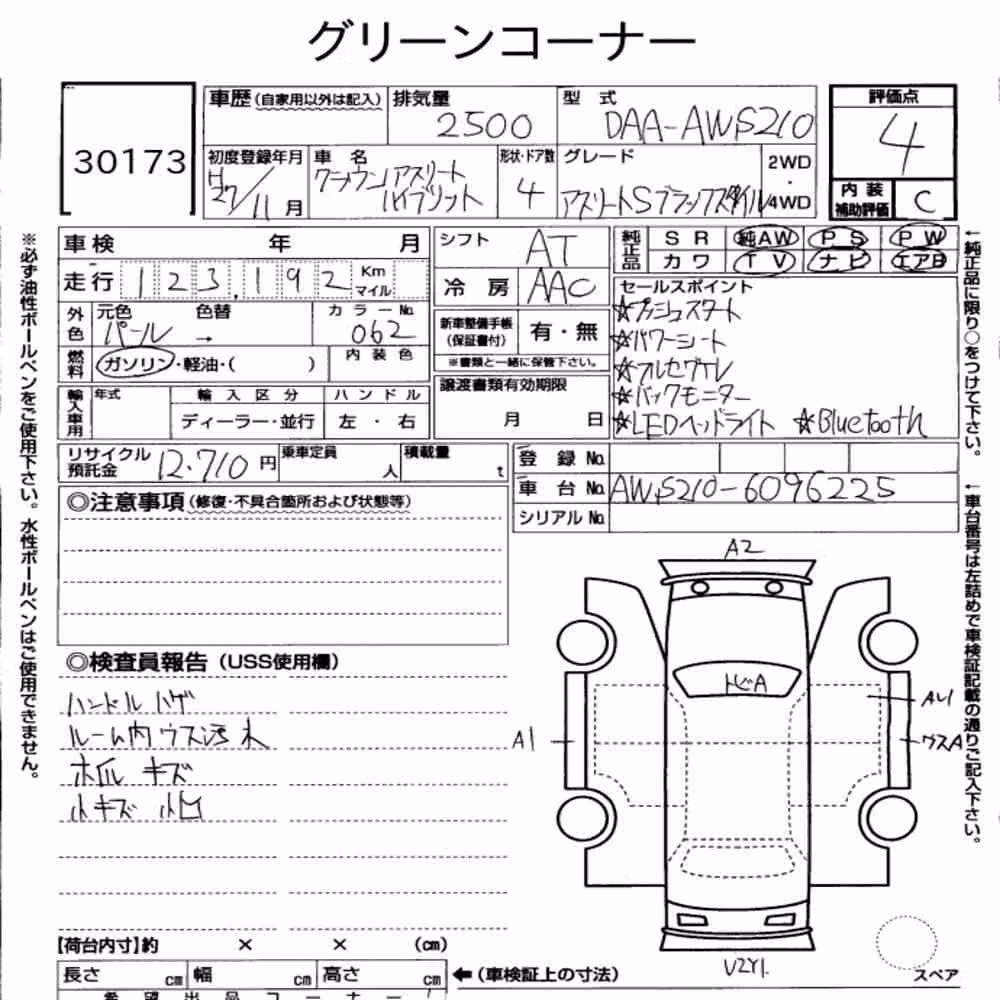 グリーンコーナー
30173
車歴(自家用以外は記入)
排気量
2500
型 式
DAA-AWS210
評価点
4
内装
補助評価
C
初度登録年月
H27/11月
車 名
クラウン アスリート
ハイブリット
形状・ドア数
4
グレード
アスリートSブラックスタイル
2WD
・
4WD
車検 年 月
走行 123,192 Km
マイル
シフト AT
冷 房 AAC
純正品 SR 純AW PS PW
カワ TV ナビ エアB
外色 元色 色替 カラーNo.
パール → 062
燃料 ガソリン・軽油・( )
内 装 色
新車整備手帳
(保証書付)
有・無
※書類と一緒に保管下さい。
譲渡書類有効期限
月 日
セールスポイント
☆プッシュスタート
☆パワーシート
☆フルセグTV
☆バックモニター
☆LEDヘッドライト ☆Bluetooth
輸入車用 年式 輸入区分 ハンドル
ディーラー・並行 左・右
リサイクル
預託金
12.710円
乗車定員
人
積載量
t
登 録 No.
車 台 No. AWS210-6096225
シリアル No.
◎注意事項(修復・不具合箇所および状態等)
◎検査員報告(USS使用欄)
ハンドル ハゲ
ルーム内 ウス汚れ
キズ
小キズ 小凹
A2
トビA
A1
AU1
ウスA
スペア
【荷台内寸】約 × × (cm)
長さ cm 幅 cm 高さ cm
←(車検証上の寸法)
希 望 出 品 コ ー ナ ー
※必ず油性ボールペンをご使用下さい。水性ボールペンはご使用できません。
←純正品に限り○をつけて下さい。
←車台番号は左詰めで車検証記載の通りご記入下さい。